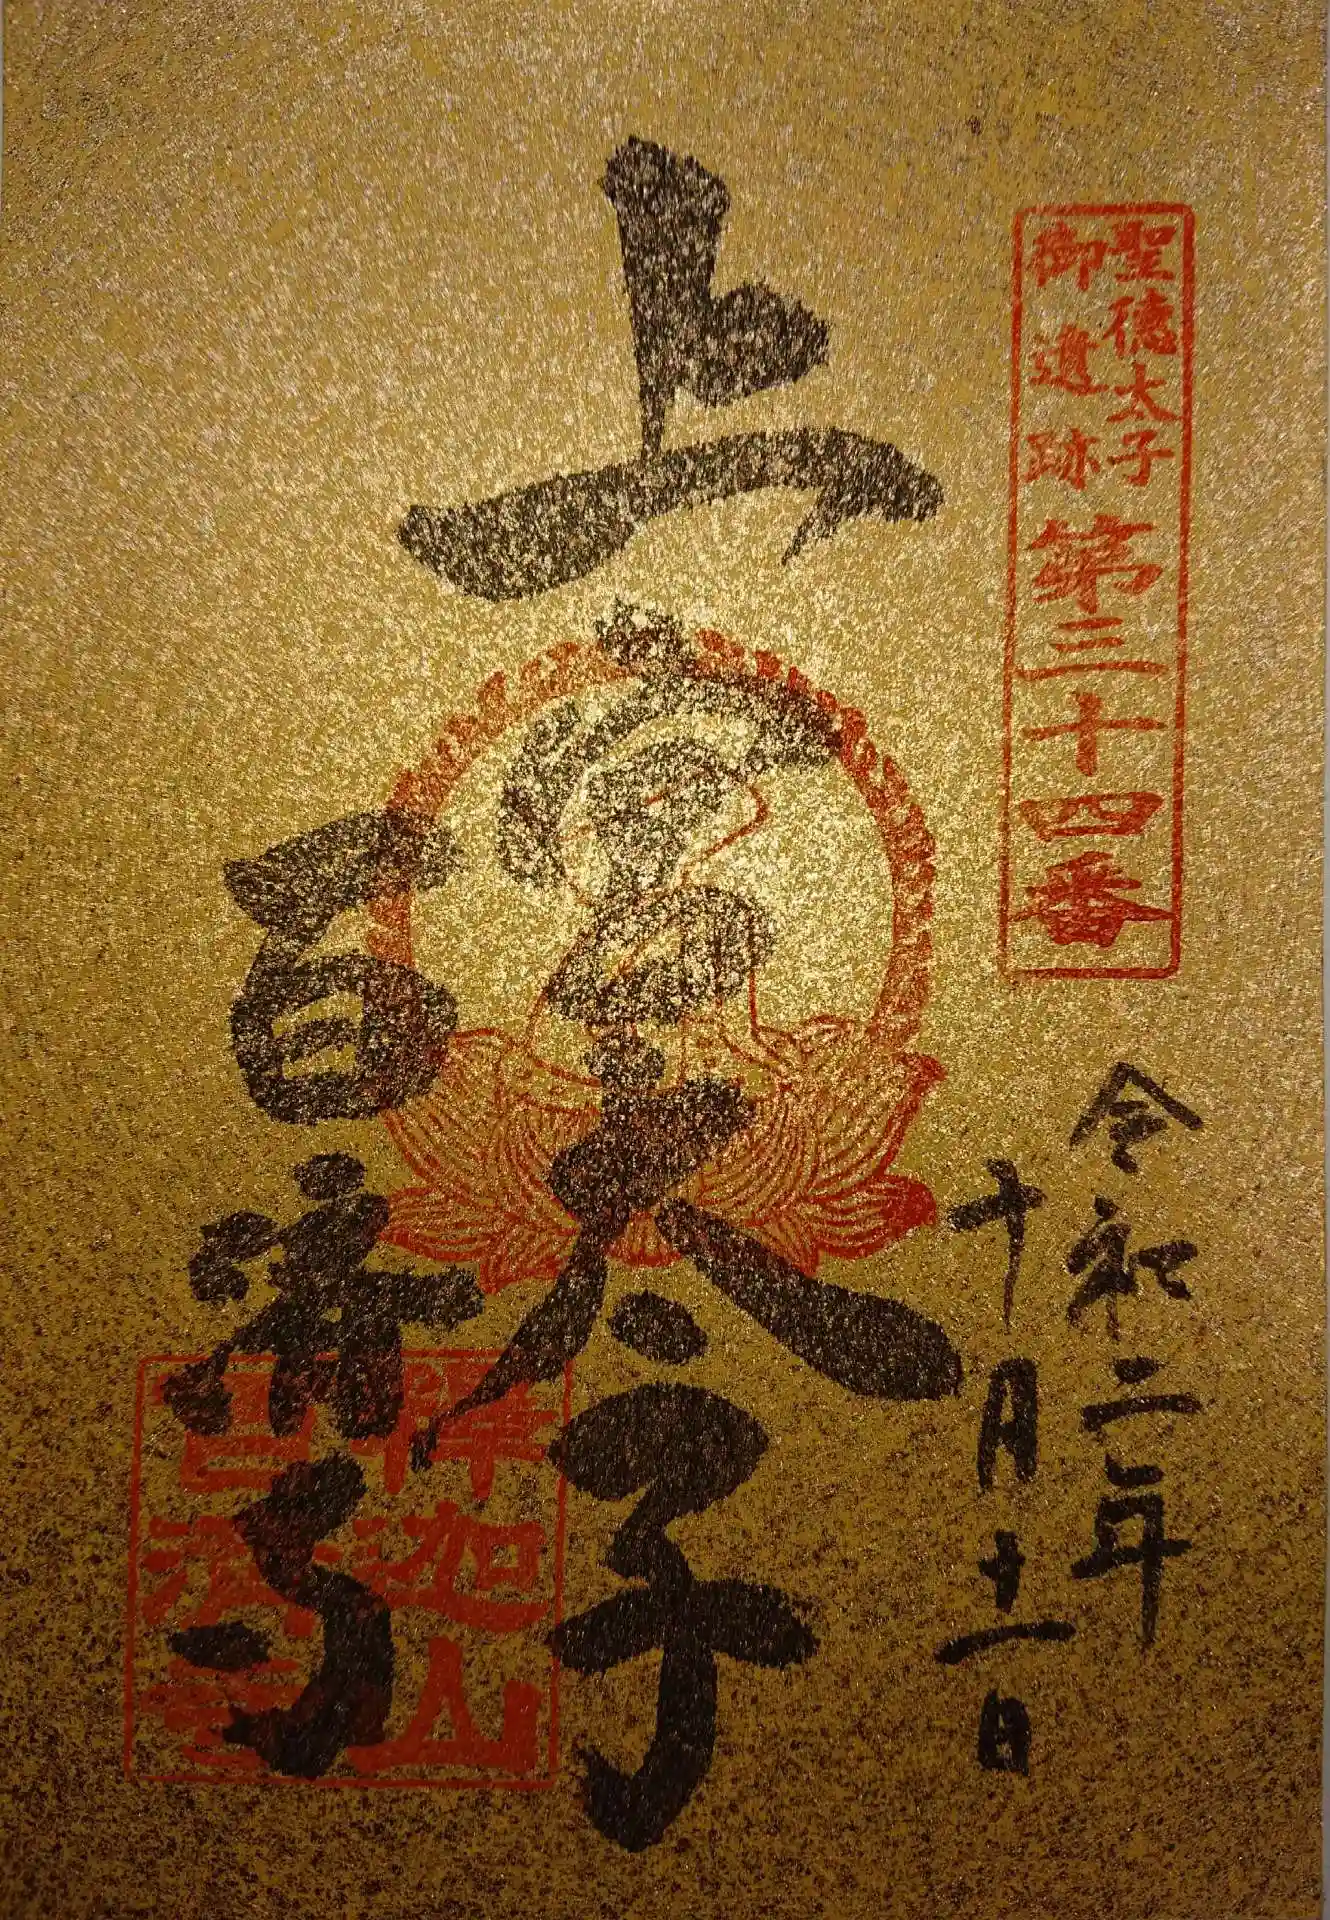 聖徳太子
御遺跡
第三十四番
令和二年
十月十一日
上宮太子
百済寺
釋迦山
百濟寺